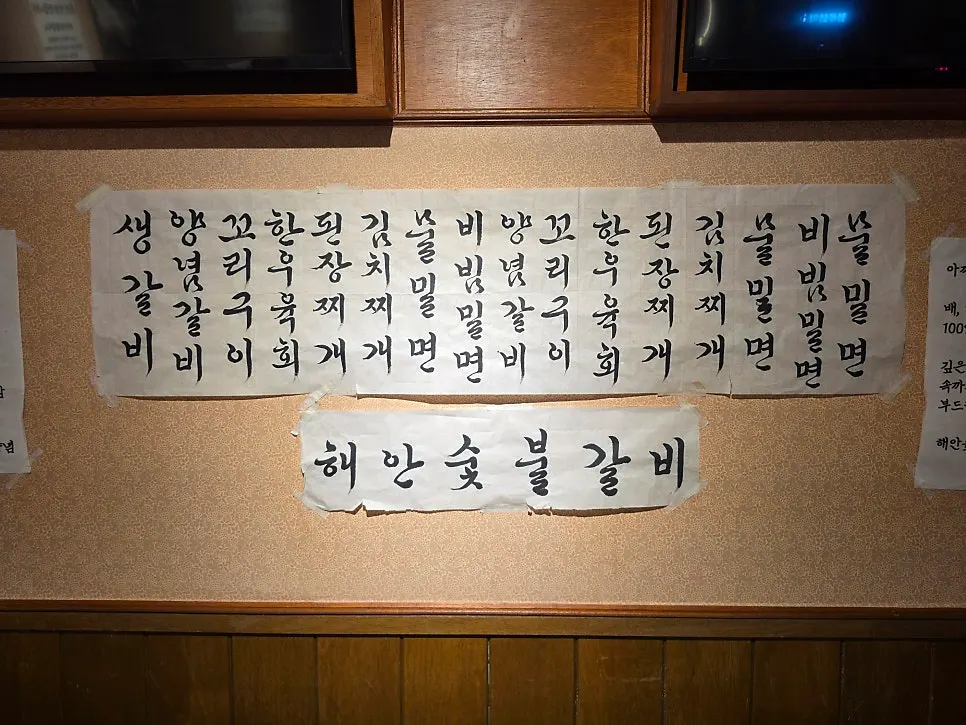 생갈비
양념갈비
꼬리구이
한우육회
된장찌개
김치찌개
물밀면
비빔밀면
양념갈비
꼬리구이
한우육회
된장찌개
김치찌개
물밀면
비빔밀면
물밀면
해안숯불갈비
배,
깊은